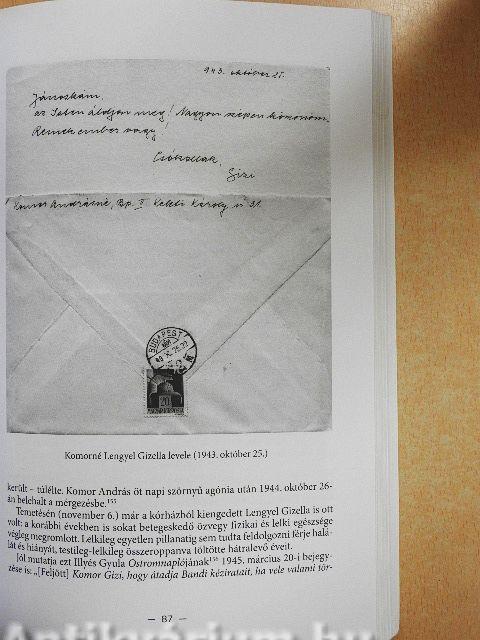 1943. október 25.
Jánoskám,
az Isten áldjon meg! Nagyon szépen köszönöm.
Remek ember vagy!
Csókollak,
Gizi
Komor Andrásné, Bp. II Keleti Károly u 31.
BUDAPEST
20
Komorné Lengyel Gizella levele (1943. október 25.)
került – túlélte. Komor András öt napi szörnyű agónia után 1944. október 26-
án belehalt a mérgezésbe.¹⁵⁵
Temetésén (november 6.) már a kórházból kiengedett Lengyel Gizella is ott
volt: a korábbi években is sokat betegeskedő özvegy fizikai és lelki egészsége
végleg megromlott. Lelkileg egyetlen pillanatig sem tudta feldolgozni férje halá-
lát és hiányát, testileg-lelkileg összeroppanva töltötte hátralevő éveit.
Jól mutatja ezt Illyés Gyula Ostromnaplójának¹⁵⁶ 1945. március 20-i bejegy-
zése is: „[Feljött] Komor Gizi, hogy átadja Bandi kéziratait, ha vele valami tör-
— 87 —
Antikvárium.hu